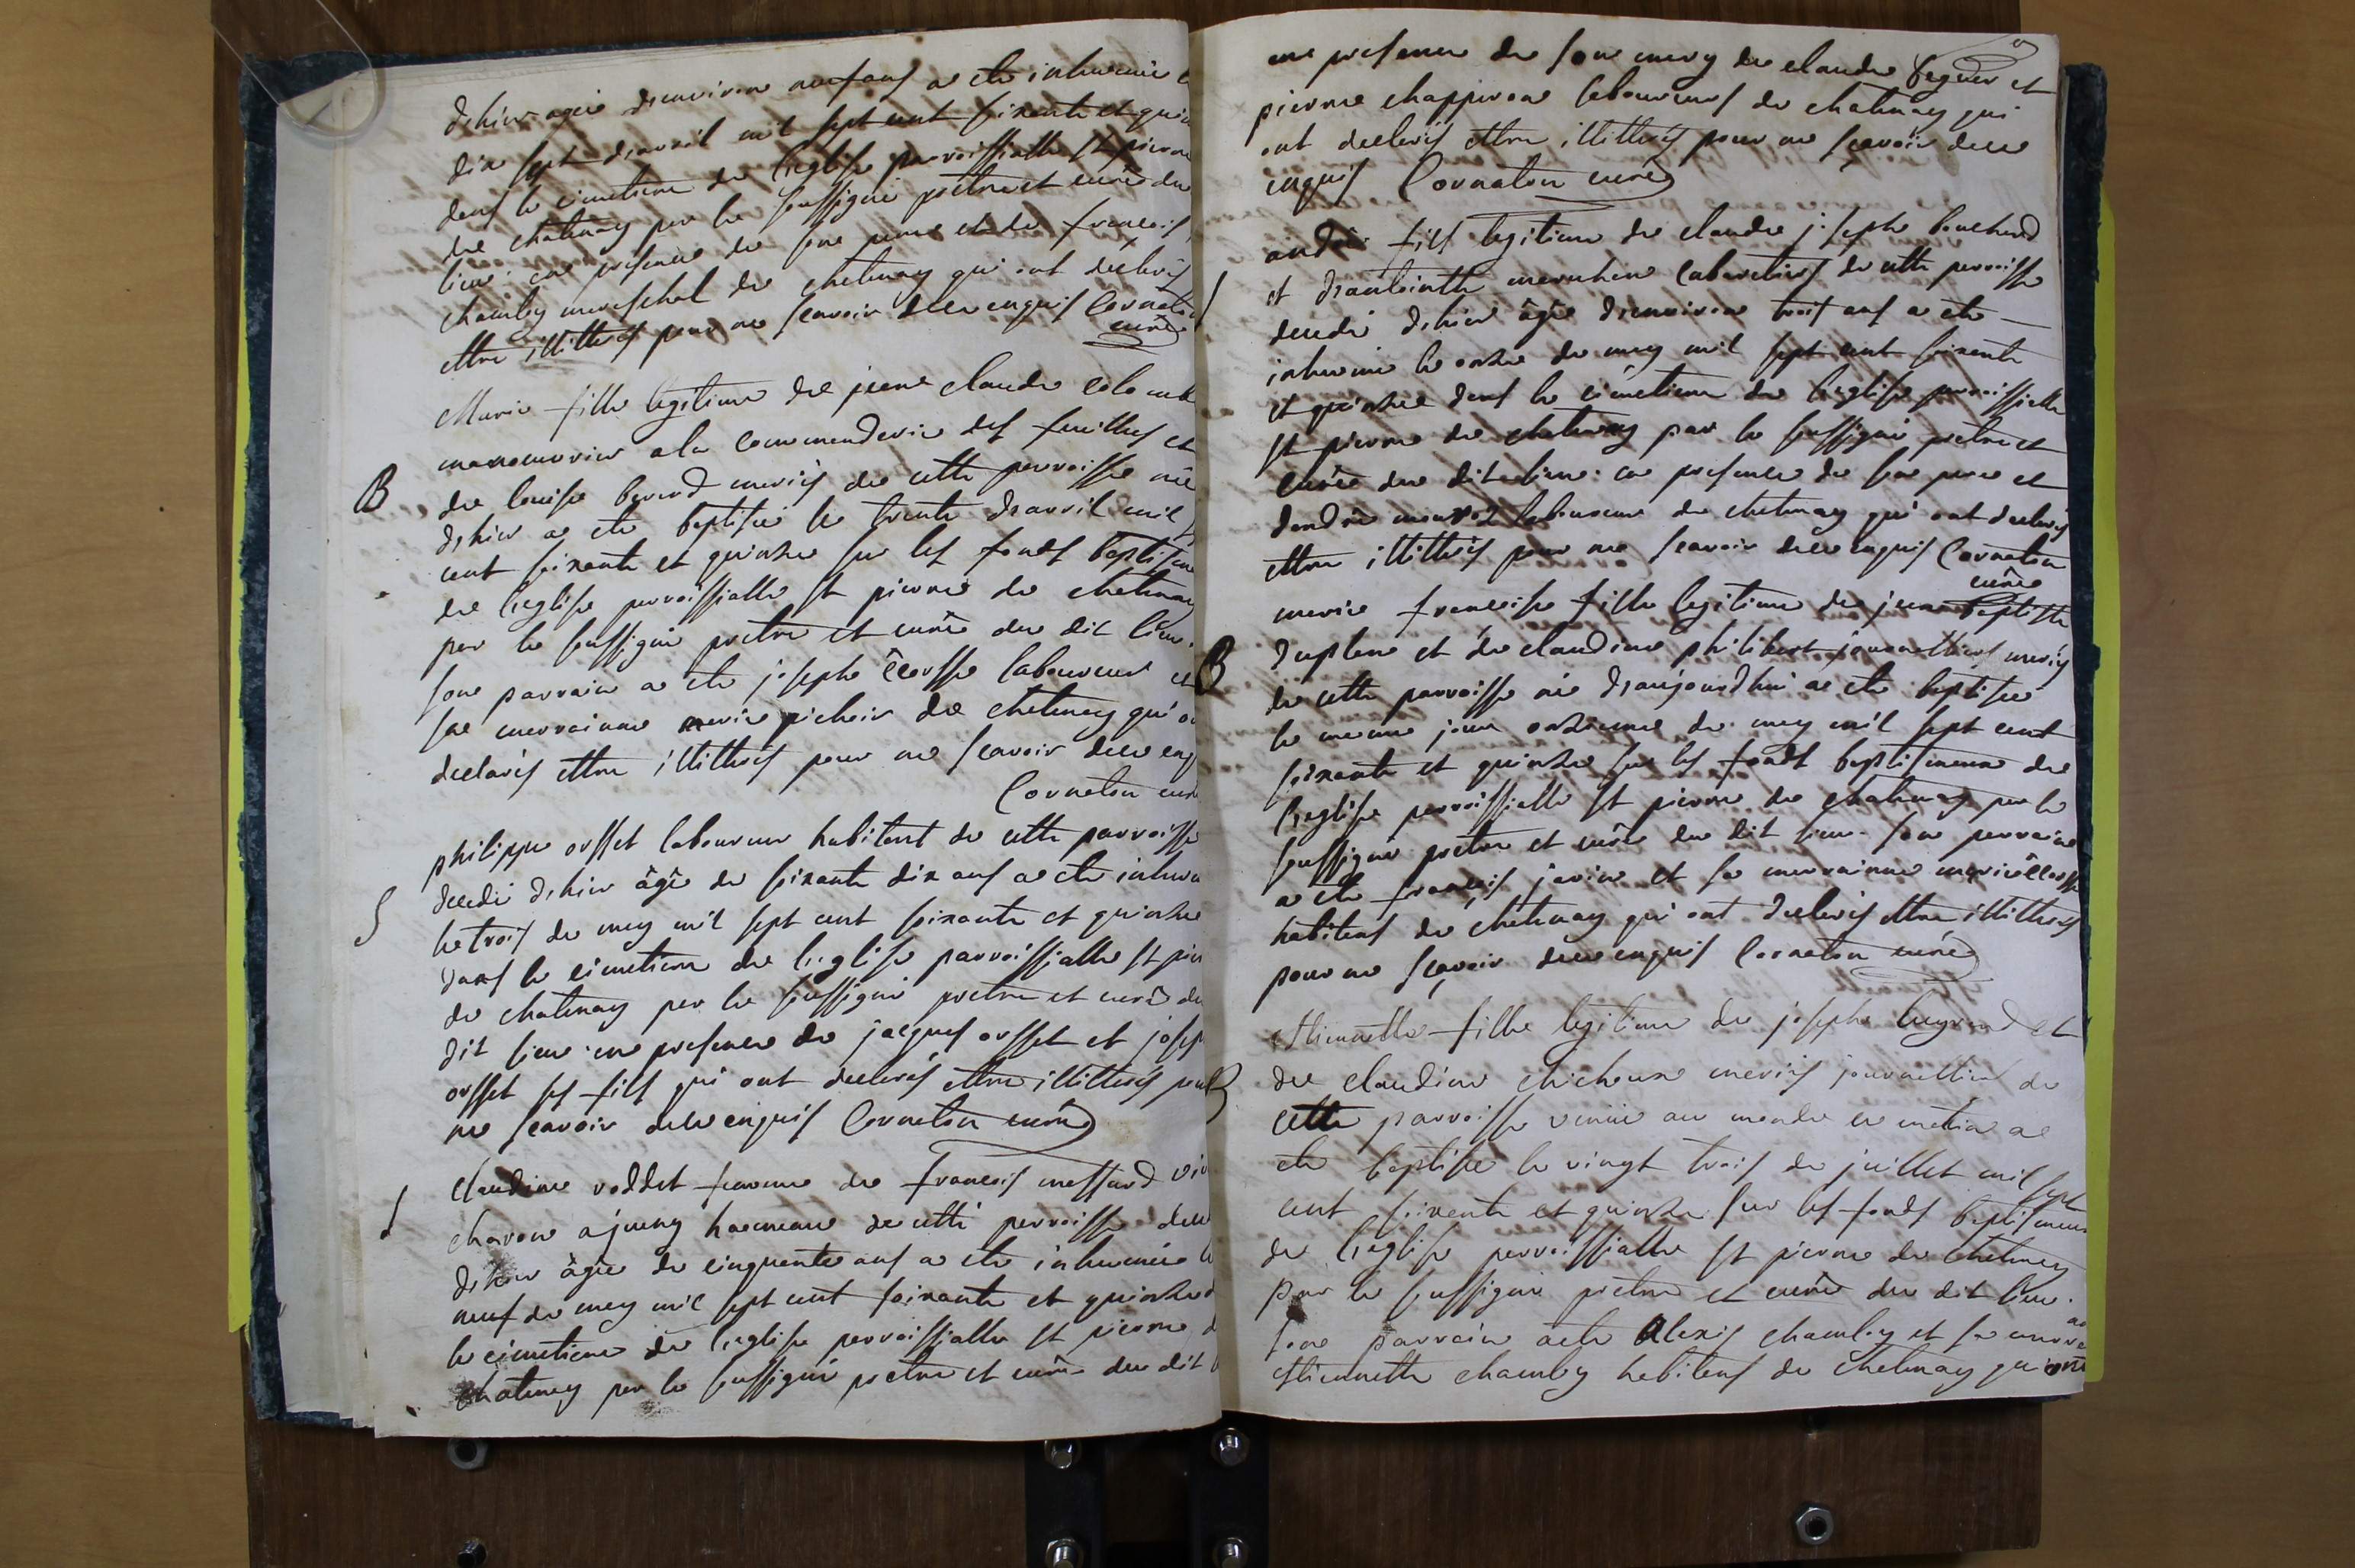 d'hier agée d'environ neuf ans a ete inhumée
dix sept d'avril mil sept cent soixante et quin
dans le cimetiere de l'eglise parroissialle st pierre
de chatenay par le soussigné pretre et curé du
lieu: en presence de son pere et de francois
chamby mareschal de chatenay qui ont declarés
ettre illitterés pour ne scavoir de ce enquis Cornaton
curé
Marie fille legitime de jean claude colomb
manoeuvrier a la commanderie des feuilles et
B
de louise berard mariés de cette parroisse née
d'hier a ete baptisée le trente d'avril mil
cent soixante et quinze sur les fonds baptism
de l'eglise parroissialle st pierre de chatenay
par le soussigné pretre et curé du dit lieu.
son parrain a ete joseph ecosse laboureur et
sa marrainne marie pichoir de chatenay qui o
declarés ettre illitterés pour ne scavoir de ce enq
Cornaton curé
philippe orsset laboureur habitant de cette parroisse
decedé d'hier âgé de soixante dix ans a ete inhu
S
le trois de may mil sept cent soixante et quinze
dans le cimetiere de l'eglise parroissialle st pier
de chatenay par le soussigné pretre et curé du
dit lieu: en presence de jacques orsset et josep
orsset ses fils qui ont declarés ettre illitterés pour
ne scavoir de ce enquis Cornaton curé
claudine roddet femme de francois massard vi
S
charon a jueng hameau de cette parroisse dece
d'hier âgée de cinquante ans a ete inhumée le
neuf de may mil sept cent soixante et quinze d
le cimetiere de l'eglise parroissialle st pierre d
chatenay par le soussigné pretre et curé du dit l
en presence de son mary de claude et
pierre chapperon laboureurs de chatenay qui
ont declarés ettre illitterés pour ne sçavoir de ce
enquis Cornaton curé
andré fils legitime de claude joseph bouchard
S
et d'anteinette cabaretiers de cette parroisse
decedé d'hier âgé d'environ trois ans a ete
inhumé le onze de may mil sept cent soixante
et quinze dans le cimetiere de l'eglise parroissialle
st pierre de chatenay par le soussigné pretre et
curé du dit lieu: en presence de son pere et
d'andré laboureur de chatenay qui ont declarés
ettre illitterés pour ne scavoir de ce enquis Cornaton
curé
marie francoise fille legitime de jean baptiste
B
duplan et de claudine philibert journalliers mariés
de cette parroisse née d'aujourdhui a ete baptisée
le meme jour onzieme de may mil sept cent
soixante et quinze sur les fonds baptismaux de
l'eglise parroissialle st pierre de chatenay par le
soussigné pretre et curé du dit lieu. son parrain
a ete françois javin et sa marrainne marie ecosse
habitans de chatenay qui ont declarés ettre illitterés
pour ne sçavoir de ce enquis Cornaton curé
ettiennette fille legitime de joseph et
B
de claudine mariés journallier de
cette parroisse venue au monde ce matin a
ete baptisée le vingt trois de juillet mil sept
cent soixante et quinze sur les fonds baptismaux
de l'eglise parroissialle st pierre de chatenay
par le soussigné pretre et curé du dit lieu.
son parrain a ete Alexis chamby et sa marra
ettiennette chamby habitans de chatenay qui ont